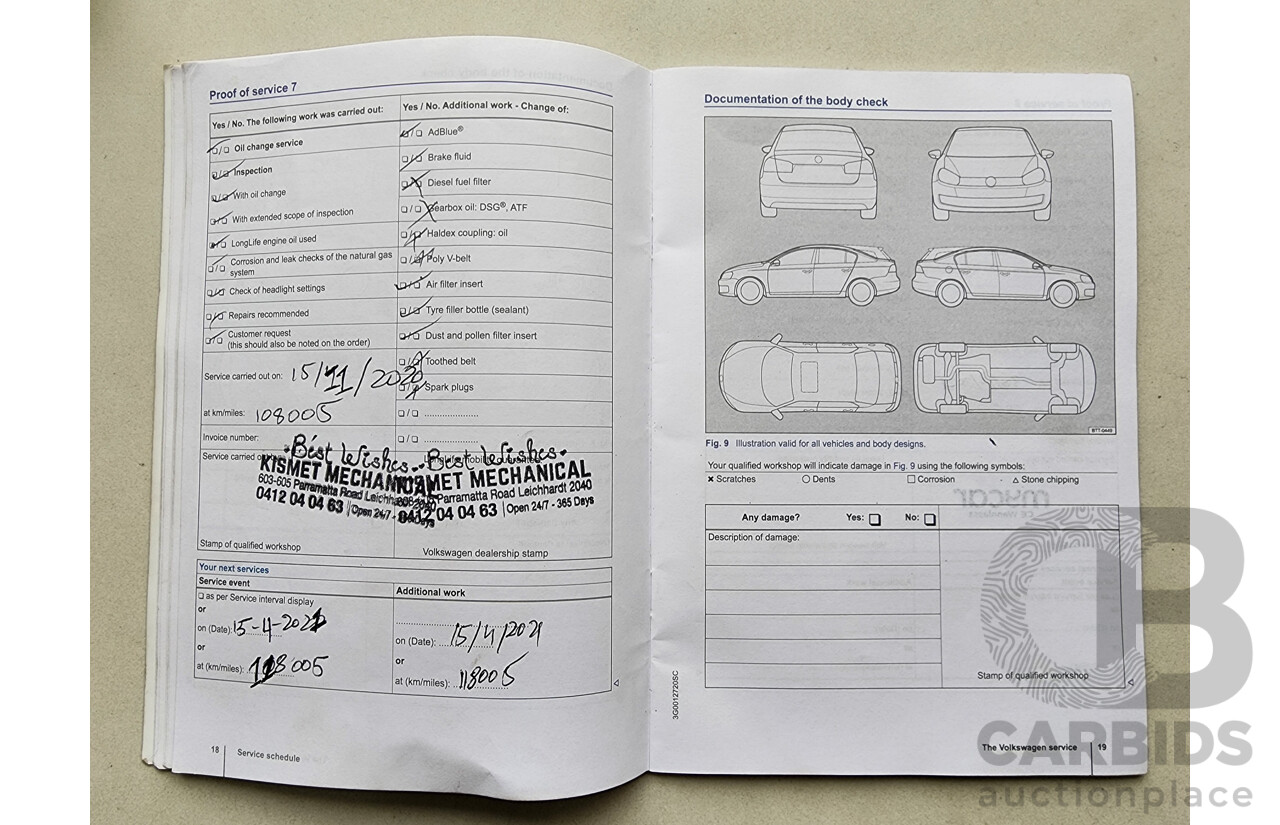 Proof of service 7
Yes / No. The following work was carried out:
☐/☐ Oil change service
☐/☐ Inspection
☐/☐ With oil change
☐/☐ With extended scope of inspection
☐/☐ LongLife engine oil used
☐/☐ Corrosion and leak checks of the natural gas
system
☐/☐ Check of headlight settings
☐/☐ Repairs recommended
☐/☐ Customer request
(this should also be noted on the order)
Service carried out on: 15/11/2020
at km/miles: 108005
Invoice number:
Service carried
Best Wishes
KISMET MECHANICAL
603-605 Parramatta Road Leichhardt
0412 04 04 63 | Open 24/7 -
Stamp of qualified workshop
Yes / No. Additional work - Change of:
☐/☐ AdBlue®
☐/☐ Brake fluid
☐/☐ Diesel fuel filter
☐/☐ Gearbox oil: DSG®, ATF
☐/☐ Haldex coupling: oil
☐/☐ Poly V-belt
☐/☐ Air filter insert
☐/☐ Tyre filler bottle (sealant)
☐/☐ Dust and pollen filter insert
☐/☐ Toothed belt
☐/☐ Spark plugs
☐/☐ ....................
☐/☐ ....................
Best Wishes
KISMET MECHANICAL
Parramatta Road Leichhardt 2040
0412 04 04 63 | Open 24/7 - 365 Days
Volkswagen dealership stamp
Your next services
Service event
☐ as per Service interval display
or
on (Date): 15-4-2021
or
at (km/miles): 118005
Additional work
on (Date): 15/4/2021
or
at (km/miles): 118005
18 Service schedule
Documentation of the body check
BTT-0449
Fig. 9 Illustration valid for all vehicles and body designs.
Your qualified workshop will indicate damage in Fig. 9 using the following symbols:
× Scratches ○ Dents □ Corrosion △ Stone chipping
Any damage? Yes: ☐ No: ☐
Description of damage:
Stamp of qualified workshop
3G0012720SC
The Volkswagen service 19
CARBIDS
auctionplace